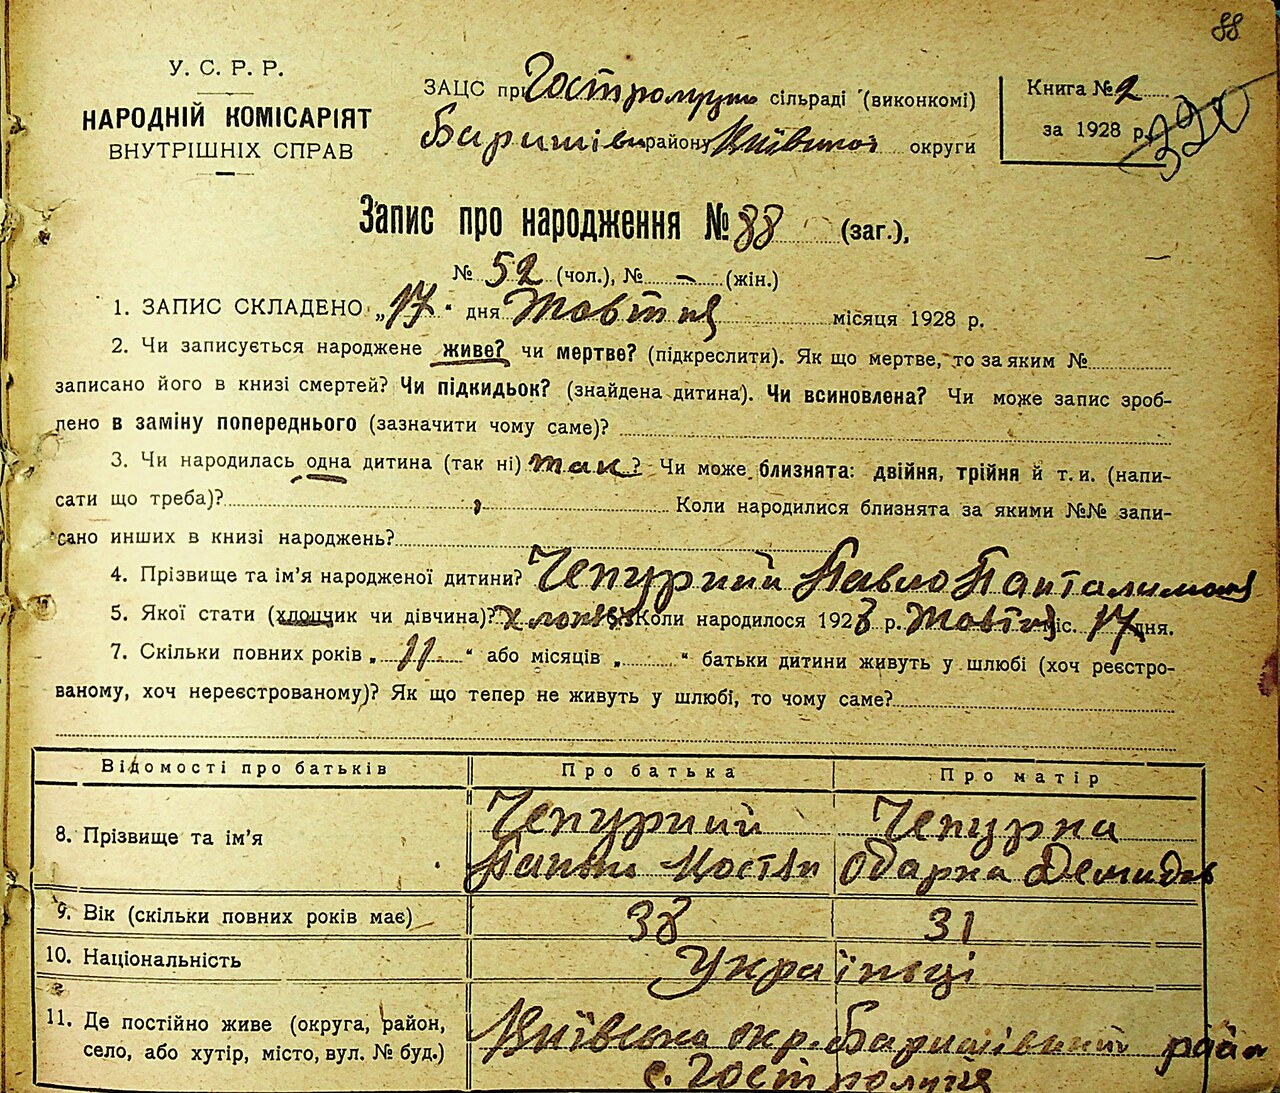 88
У. С. Р. Р.
НАРОДНІЙ КОМІСАРІЯТ
ВНУТРІШНІХ СПРАВ
ЗАЦС при Гостролуцьк сільраді (виконкомі)
Баришівськ району Київської округи
Книга № 2
за 1928 р.
320
Запис про народження № 88 (заг.),
№ 52 (чол.), № – (жін.)
1. ЗАПИС СКЛАДЕНО „17“ дня Жовтня місяця 1928 р.
2. Чи записується народжене живе? чи мертве? (підкреслити). Як що мертве, то за яким №
записано його в книзі смертей? Чи підкидьок? (знайдена дитина). Чи всиновлена? Чи може запис зроб-
лено в заміну попереднього (зазначити чому саме)?
3. Чи народилась одна дитина (так ні) так? Чи може близнята: двійня, трійня й т. и. (напи-
сати що треба)? Коли народилися близнята за якими №№ запи-
сано инших в книзі народжень?
4. Прізвище та ім’я народженої дитини? Чепурний Павло Панталимон
5. Якої стати (хлопчик чи дівчина)? хлопчик 6. Коли народилося 1928 р. Жовтня міс. 17 дня.
7. Скільки повних років „11“ або місяців „ “ батьки дитини живуть у шлюбі (хоч реєстро-
ваному, хоч нереєстрованому)? Як що тепер не живуть у шлюбі, то чому саме?
Відомості про батьків Про батька Про матір
8. Прізвище та ім’я Чепурний Чепурна
Костян Одарка Демидов
9. Вік (скільки повних років має) 38 31
10. Національність Українці
11. Де постійно живе (округа, район,
село, або хутір, місто, вул. № буд.)
Київська окр. Баришівський район
с. Гостролуччя